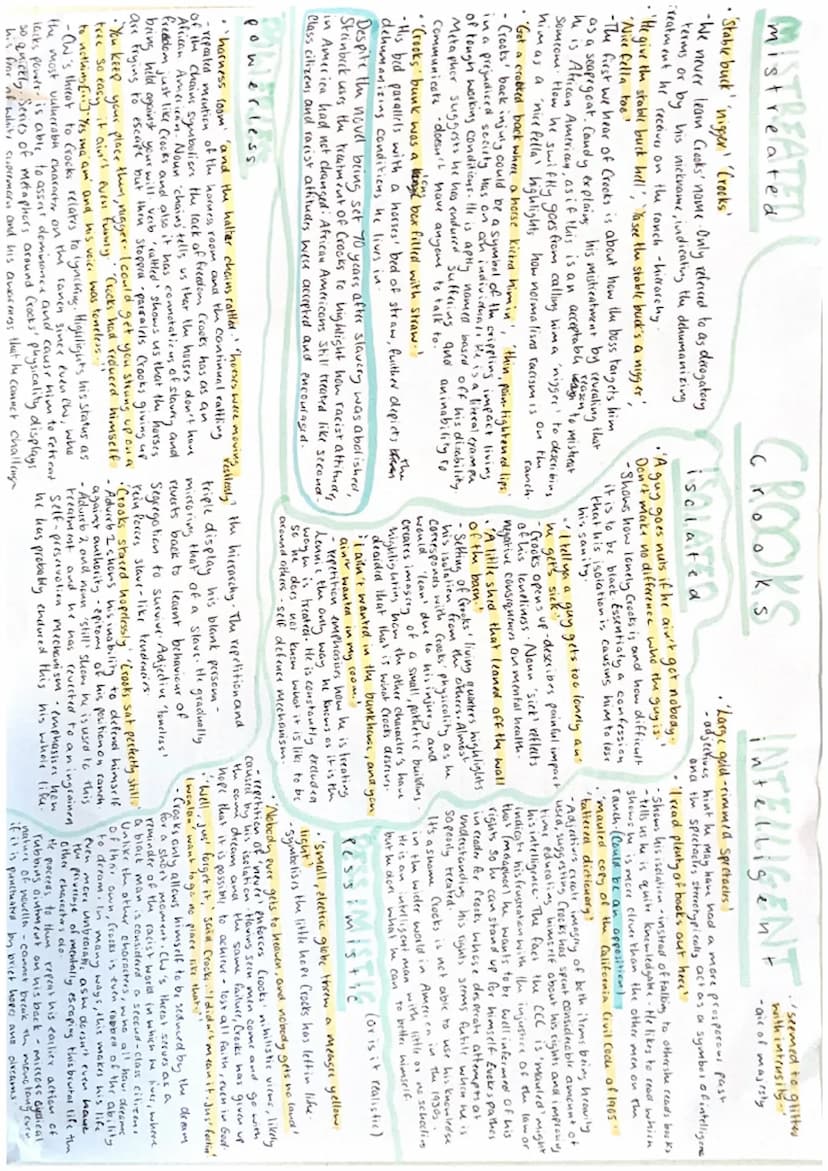 CROOKS
Crooks
MISTREATED
mistreated
• 'Stable buck' 'nigger' 'Crooks'
- We never learn Crooks' name. Only referred to as derogatory
terms or by his nickname, indicating the dehumanizing
treatment he receives on the ranch - hierarchy.
• 'He give the stable buck hell', 'ya see the stable buck's a nigger',
'Nice fella too'
- The first we hear of Crooks is about how the boss targets him
as a scapegoat. Candy explains his mistreatment by revealing that
he is African American, as if this is an acceptable reason to mistreat
someone. How he swiftly goes from calling him a 'nigger' to describing
him as a 'nice fella' highlights how normalised racism is on the ranch
• 'Got a crooked back where a horse kicked him in', 'thin, pain tightened lips'
- Crooks' back injury could be a symbol of the crippling impact living
in a prejudiced society has on an individual. He is a literal example
of tough working conditions. He is aptly named based off his disability
Metaphor suggests he has endured suffering and an inability to
communicate - doesn't have anyone to talk to.
• 'Crooks' bunk was a long box filled with straw'
- His bed parallels with a horses' bed of straw, further depicts the
dehumanizing conditions he lives in.
Despite the novel being set 70 years after slavery was abolished,
Steinbeck uses the treatment of Crooks to highlight how racist attitudes
in America had not changed. African Americans still treated like second-
class citizens and racist attitudes were accepted and encouraged.
POWERLESS
powerless
• 'harness room' 'and the halter chains rattled' 'horses were moving restlessly'
- repeated mention of the harness room and the continual rattling
of the chains symbolises the lack of freedom Crooks has as an
African American. Noun 'chains' tells us that the horses don't have
freedom just like Crooks and also it has connotations of slavery and
being held against your will. Verb 'rattled' shows us that the horses
are trying to escape but then stopped parallels Crooks giving up
• 'You keep your place then, nigger. I could get you strung up on a
tree so easy it ain't even funny' 'Crooks had reduced himself
to nothing [...] Yes ma'am' and his voice was toneless'
- CW's threat to Crooks relates to lynching. Highlights his status as
the most vulnerable character on the ranch since even CW, who
lacks power is able to assert dominance and cause him to retreat
so quickly. Series of metaphors around Crooks' physicality displays
his fear of white supremacy and his awareness that he cannot challenge
the hierarchy. The repetition and
triple display his blank persona -
mirroring that of a slave. He gradually
reverts back to learnt behaviour of
segregation to survive. Adjective 'toneless'
reinforces slave-like tendencies
• 'Crooks stared hopelessly' 'Crooks sat perfectly still'
- Adverb 1 shows his inability to defend himself
against authority - epitome of his position on ranch
Adverb 2 and noun 'still' show he is used to this
treatment and has reverted to an ingrained
self-preservation mechanism - emphasises how
he has probably endured this his whole life.
ISOLATED
isolated
• 'A guy goes nuts if he ain't got nobody.
Don't make no difference who the guy is'
- Shows how lonely Crooks is and how difficult
it is to be black. Essentially a confession
that his isolation is causing him to lose
his sanity.
• 'I tell ya a guy gets too lonely an'
he gets sick'
- Crooks opens up - describes painful impact
of his loneliness. Noun 'sick' reflects
negative consequences on mental health.
• 'A little shed that leaned off the wall
of the barn.'
- Setting of Crooks' living quarters highlights
his isolation from the others. Almost
corresponds with Crooks' physicality as he
would 'lean' due to his injury and
creates imagery of a small, pathetic building -
highlighting how the other character's have
decided that that is what Crooks deserves.
• 'I ain't wanted in the bunkhouse, and you
ain't wanted in my room'
- repetition emphasises how he is treating
Lennie the only way he knows as it is the
way he is treated. He is constantly excluded
so he does not know what it is like to be
around others - self defence mechanism.
INTELLIGENT
intelligent
• 'seemed to glitter
with intensity'
- air of majesty
• 'Large gold-rimmed spectacles'
- adjectives hint he may have had a more prosperous past
and the spectacles stereotypically act as a symbol of intelligence
• 'I read plenty of books out here'
- Shows his isolation - instead of talking to others he reads books
- tells us he is quite knowledgable. He likes to read which
shows he is more clever than the other men on the
ranch (could be an opposition)
• 'mauled copy of the California Civil Code of 1905'
'tattered dictionary'
- Adjectives clear imagery of both items being heavily
used, suggesting Crooks has spent considerable amount of
time educating himself about his rights and improving
his intelligence. The fact the CCC is 'mauled' might
indicate his frustration with the injustice of the law or
that maybe he wants to be well informed of his
rights so he can stand up for himself. Evokes pathos
in reader for Crooks whose desperate attempts at
understanding his rights seems futile when he is
so poorly treated.
It's a shame Crooks is not able to use his knowledge
in the wider world in America in the 1930s.
He is an intelligent man with little or no schooling
but he does what he can to better himself.
PESSIMISTIC
pessimistic (or is it realistic)
• 'small, electric globe threw a meagre yellow
light'
- symbolises the little hope Crooks has left in like.
• 'Nobody ever gets to heaven, and nobody gets no land'
- repetition of 'never' enforces Crooks' nihilistic views, likely
caused by his isolation. Has seen men come and go with
the same dream and the same failure. Crooks has given up
hope that it is possible to achieve - lost all faith, even in God.
• 'Well, jus' forget it,' said Crooks. 'I didn't mean it. Jus' foolin'.
I wouldn' want to go no place like that'
- Crooks only allows himself to be seduced by the dream
for a short moment. CW's threat serves as a
reminder of the racist world in which he lives, where
a black man is considered a second-class citizen.
Unlike the other characters, who all have dreams
of the future, Crooks is even robbed of the ability
to dream. In many ways, this makes his life
even more unbearable as he doesn't even have
the privilege of mentally escaping this brutal life the
other characters do.
He proceeds to then repeat his earlier action of
rubbing ointment on his back - mirrors cyclical
nature of novella - cannot break the monotony even
if it is punctuated by brief hopes and dreams